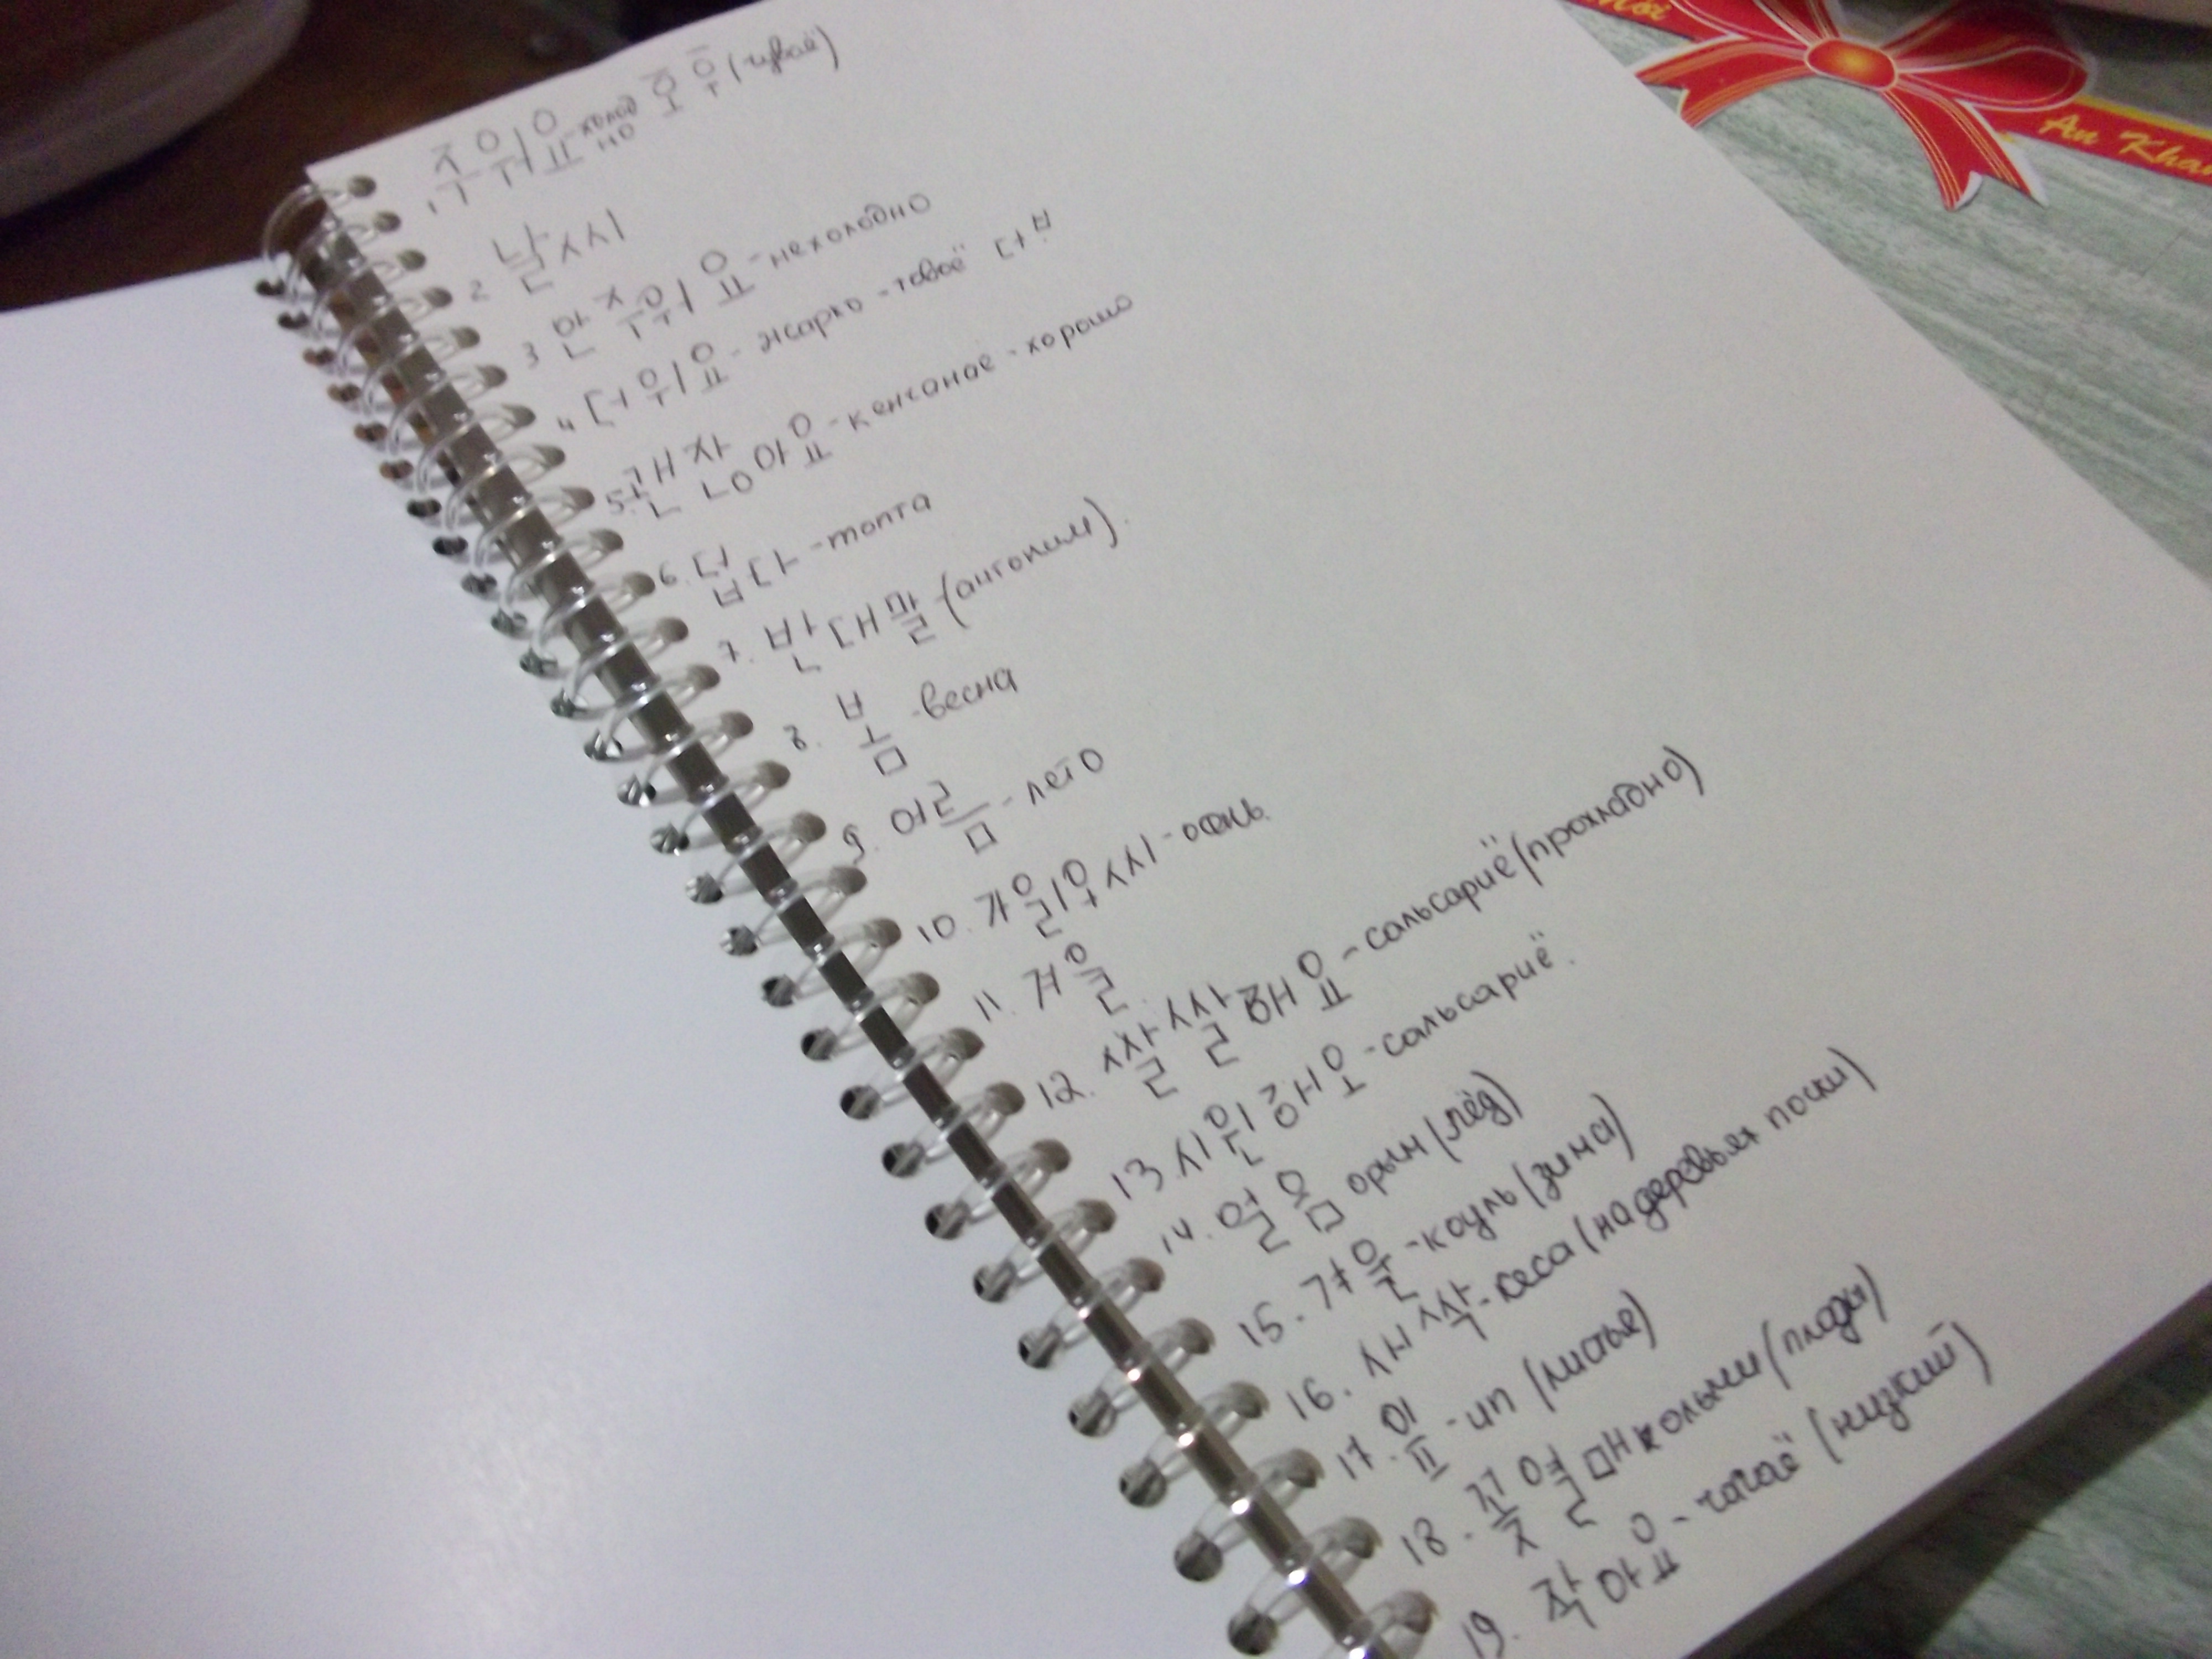 1. 주워요-холодно 호우(чувоё)
2 날씨
3 안 주워요-нехолодно
4 더워요-жарко-товоё 더부
5. 괜찮아요-кенчанае-хорошо
6. 덥다-топта
7. 반대말-(антоним).
8. 봄-весна
9. 어름-лето
10. 가을 씨-осень.
11. 겨울.
12. 쌀쌀해요-сальсариё(прохладно)
13. 시원해오-сальсариё.
14. 얼옴 орым(лёд)
15. 겨울-коуль(зима)
16. 새싹-сеса(на деревьях поски)
17. 잎-ип (листья)
18. 꽃열매колыми(плоды)
19. 작아요-чагаё (низкий)
An Khan